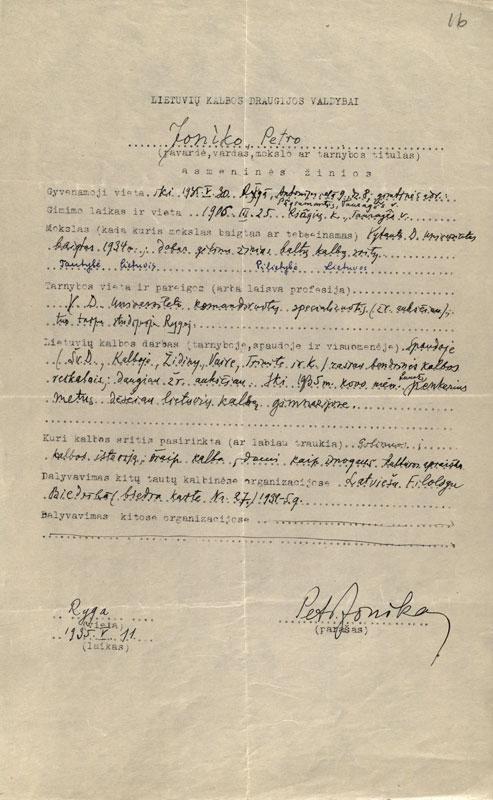 16
LIETUVIŲ KALBOS DRAUGIJOS VALDYBAI
Joniko, Petro
(pavardė, vardas, mokslo ar tarnybos titulas)
asmeninės žinios
Gyvenamoji vieta iki 1935.V.30. Ryga,
Pagramantis, Tauragės v.
Gimimo laikas ir vieta 1906.III.25. k., Tauragės v.
Mokslas (kada kuris mokslas baigtas ar tebeeinamas) Vytauto D. Universitetas
baigtas 1934 ; dabar gilinu žinias baltų kalbų srity.
Tautybė lietuvis Pilietybė Lietuvos
Tarnybos vieta ir pareigos (arba laisva profesija)
V. D. Universiteto komandiruotas specializuotis (žr. aukščiau);
tuo tarpu studijuoju Rygoj.
Lietuvių kalbos darbas (tarnyboje, spaudoje ir visuomenėje) Spaudoje
Kalboje, Židiny, Vaire, Trimite ir k.) rašau bendrinės kalbos
reikalais; daugiau žr. aukščiau. Iki 1935 m. kovo mėn. penkerius
metus dėsčiau lietuvių kalbą gimnazijose.
Kuri kalbos sritis pasirinkta (ar labiau traukia)
kalbos istorija; šiaip kalba domi kaip žmogaus kultūros apraiška
Dalyvavimas kitų tautų kalbinėse organizacijose Latviešu Filologu
Biedrības biedra karte Nr. 27/1931.5.g.
Dalyvavimas kitose organizacijose
Ryga
(vieta)
1935.V.11
(laikas)
Petr. Jonikas
(parašas)